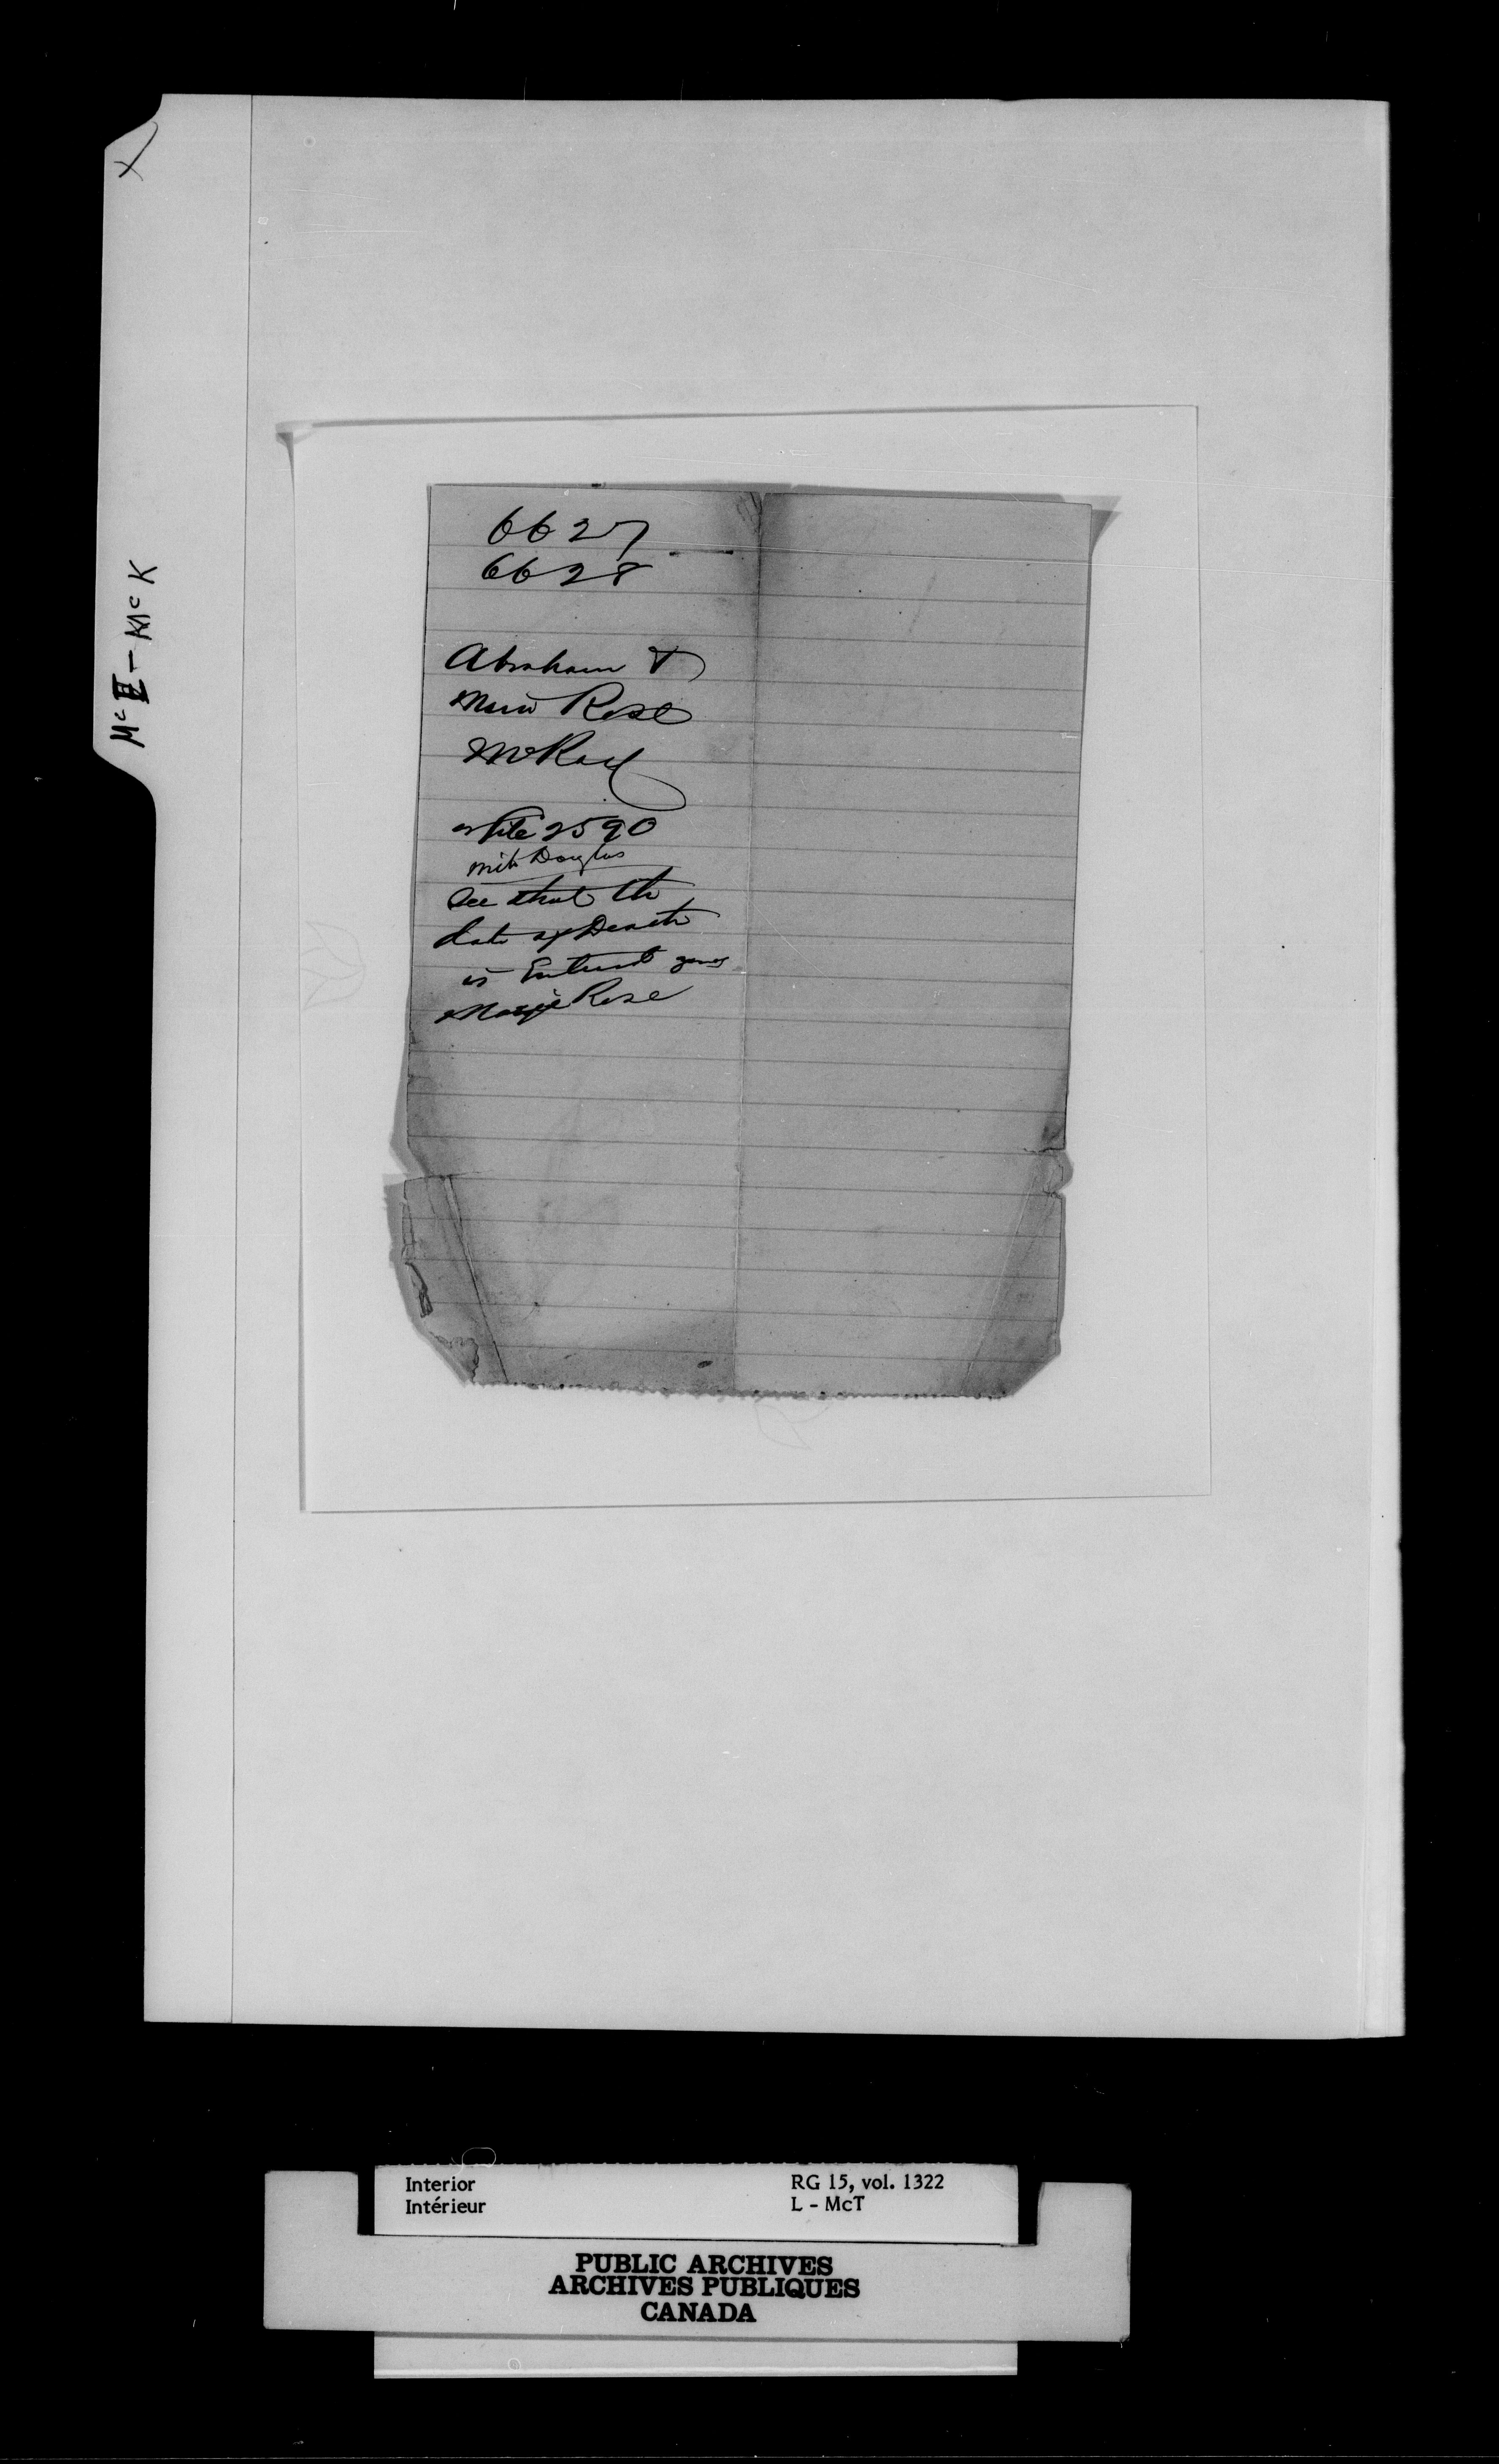 X
Mc II - McK
6627
6628
Abraham &
Marie Rose
McKay
File 2590
with Douglas
See that the
date of Death
is Entered
Marie Rose
Interior
Intérieur
RG 15, vol. 1322
L - McT
PUBLIC ARCHIVES
ARCHIVES PUBLIQUES
CANADA